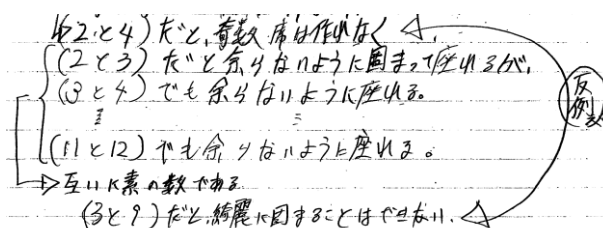 (2と4)だと、奇数席は作れなく
(2と3)だと余らないように固まって座れるが、
(3と4)でも余らないように座れる。
(11と12)でも余らないように座れる。
→互いに素の数である
(3と9)だと、綺麗に固まることはできない。
反例